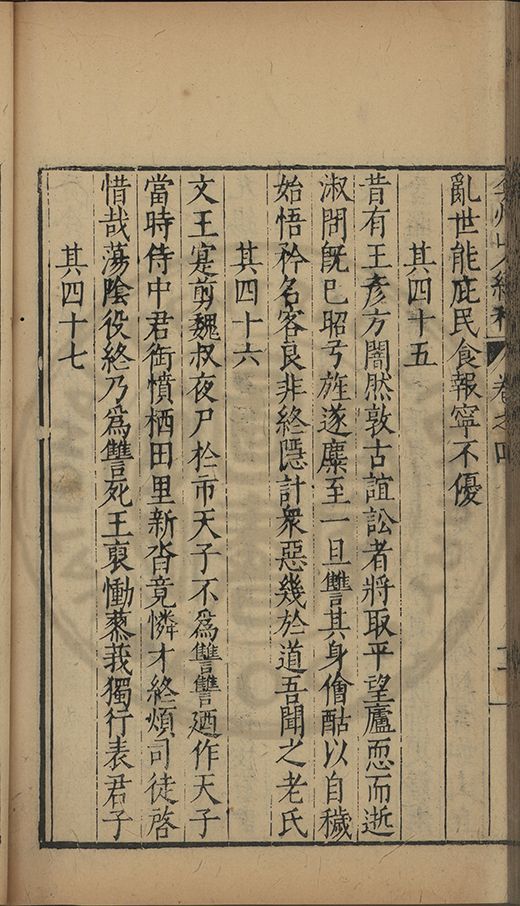 弇州山人續稿 卷之四
亂世能庇民食報寧不優
其四十五
昔有王彥方闇然敦古誼訟者將取平望廬恧而逝
淑問旣已昭弓旌遂麋至一旦讐其身儈酤以自穢
始悟矜名客良非終隱計衆惡幾於道吾聞之老氏
其四十六
文王寔剪魏叔夜尸於市天子不爲讐讐廼作天子
當時侍中君銜憤栖田里新沓竟憐才終煩司徒啓
惜哉蕩陰役終乃爲讐死王裒慟蓼莪獨行表君子
其四十七